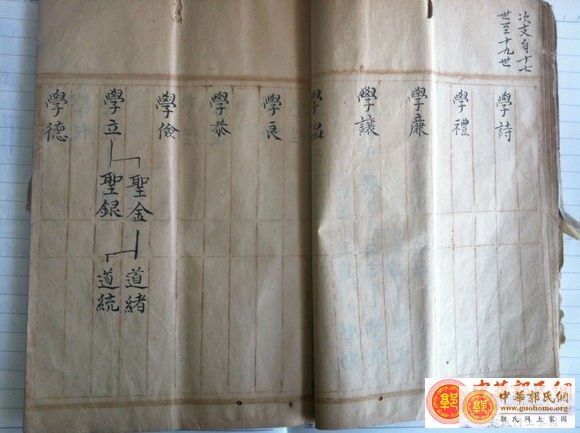 次支自十七
世至十九世
學詩
學禮
學廉
學讓
學温
學良
學恭
學儉
學立
聖金
聖銀
道緒
道統
學德
中華郭氏網
www.guohome.org
郭氏网上家園